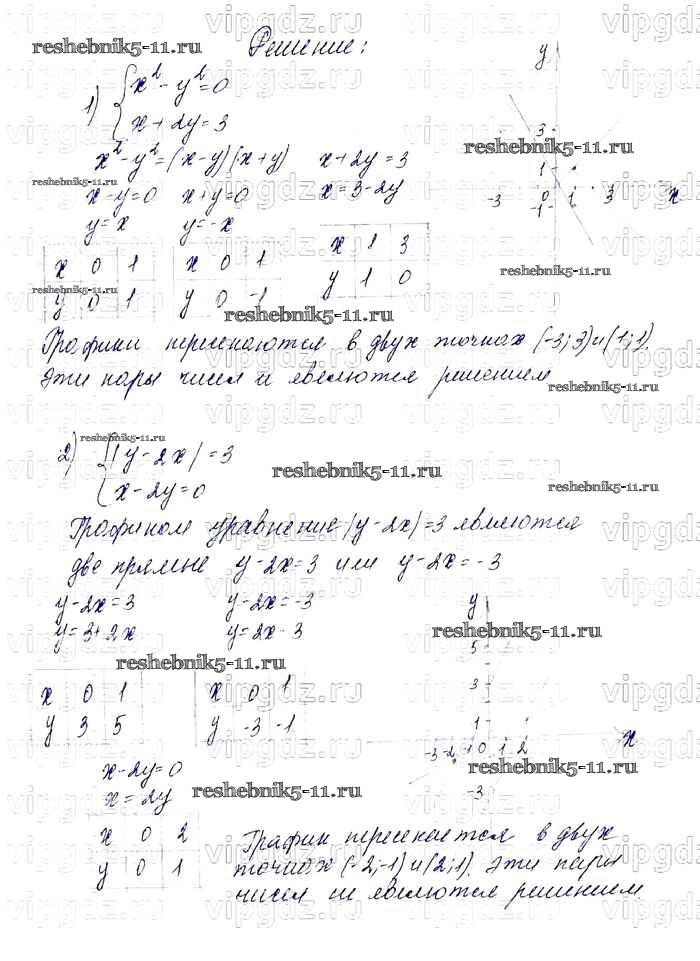 Решение:
1) { x² - y² = 0
x + 2y = 3
x² - y² = (x - y)(x + y) x + 2y = 3
x - y = 0 x + y = 0 x = 3 - 2y
y = x y = -x
x 0 1 x 0 1 x 1 3
y 0 1 y 0 -1 y 1 0
y
3
1
-3 0 1 3 x
-1
Графики пересекаются в двух точках (-3; 3) и (1; 1).
Эти пары чисел и являются решением
2) { |y - 2x| = 3
x - 2y = 0
Графиком уравнение |y - 2x| = 3 являются
две прямые y - 2x = 3 или y - 2x = -3
y - 2x = 3 y - 2x = -3
y = 3 + 2x y = 2x - 3
x 0 1 x 0 1
y 3 5 y -3 -1
y
5
3
1
-3 -2 -1 0 1 2 x
-3
x - 2y = 0
x = 2y
x 0 2
y 0 1
График пересекается в двух
точках (-2; -1) и (2; 1). Эти пары
чисел и являются решением.
reshebnik5-11.ru
vipgdz.ru